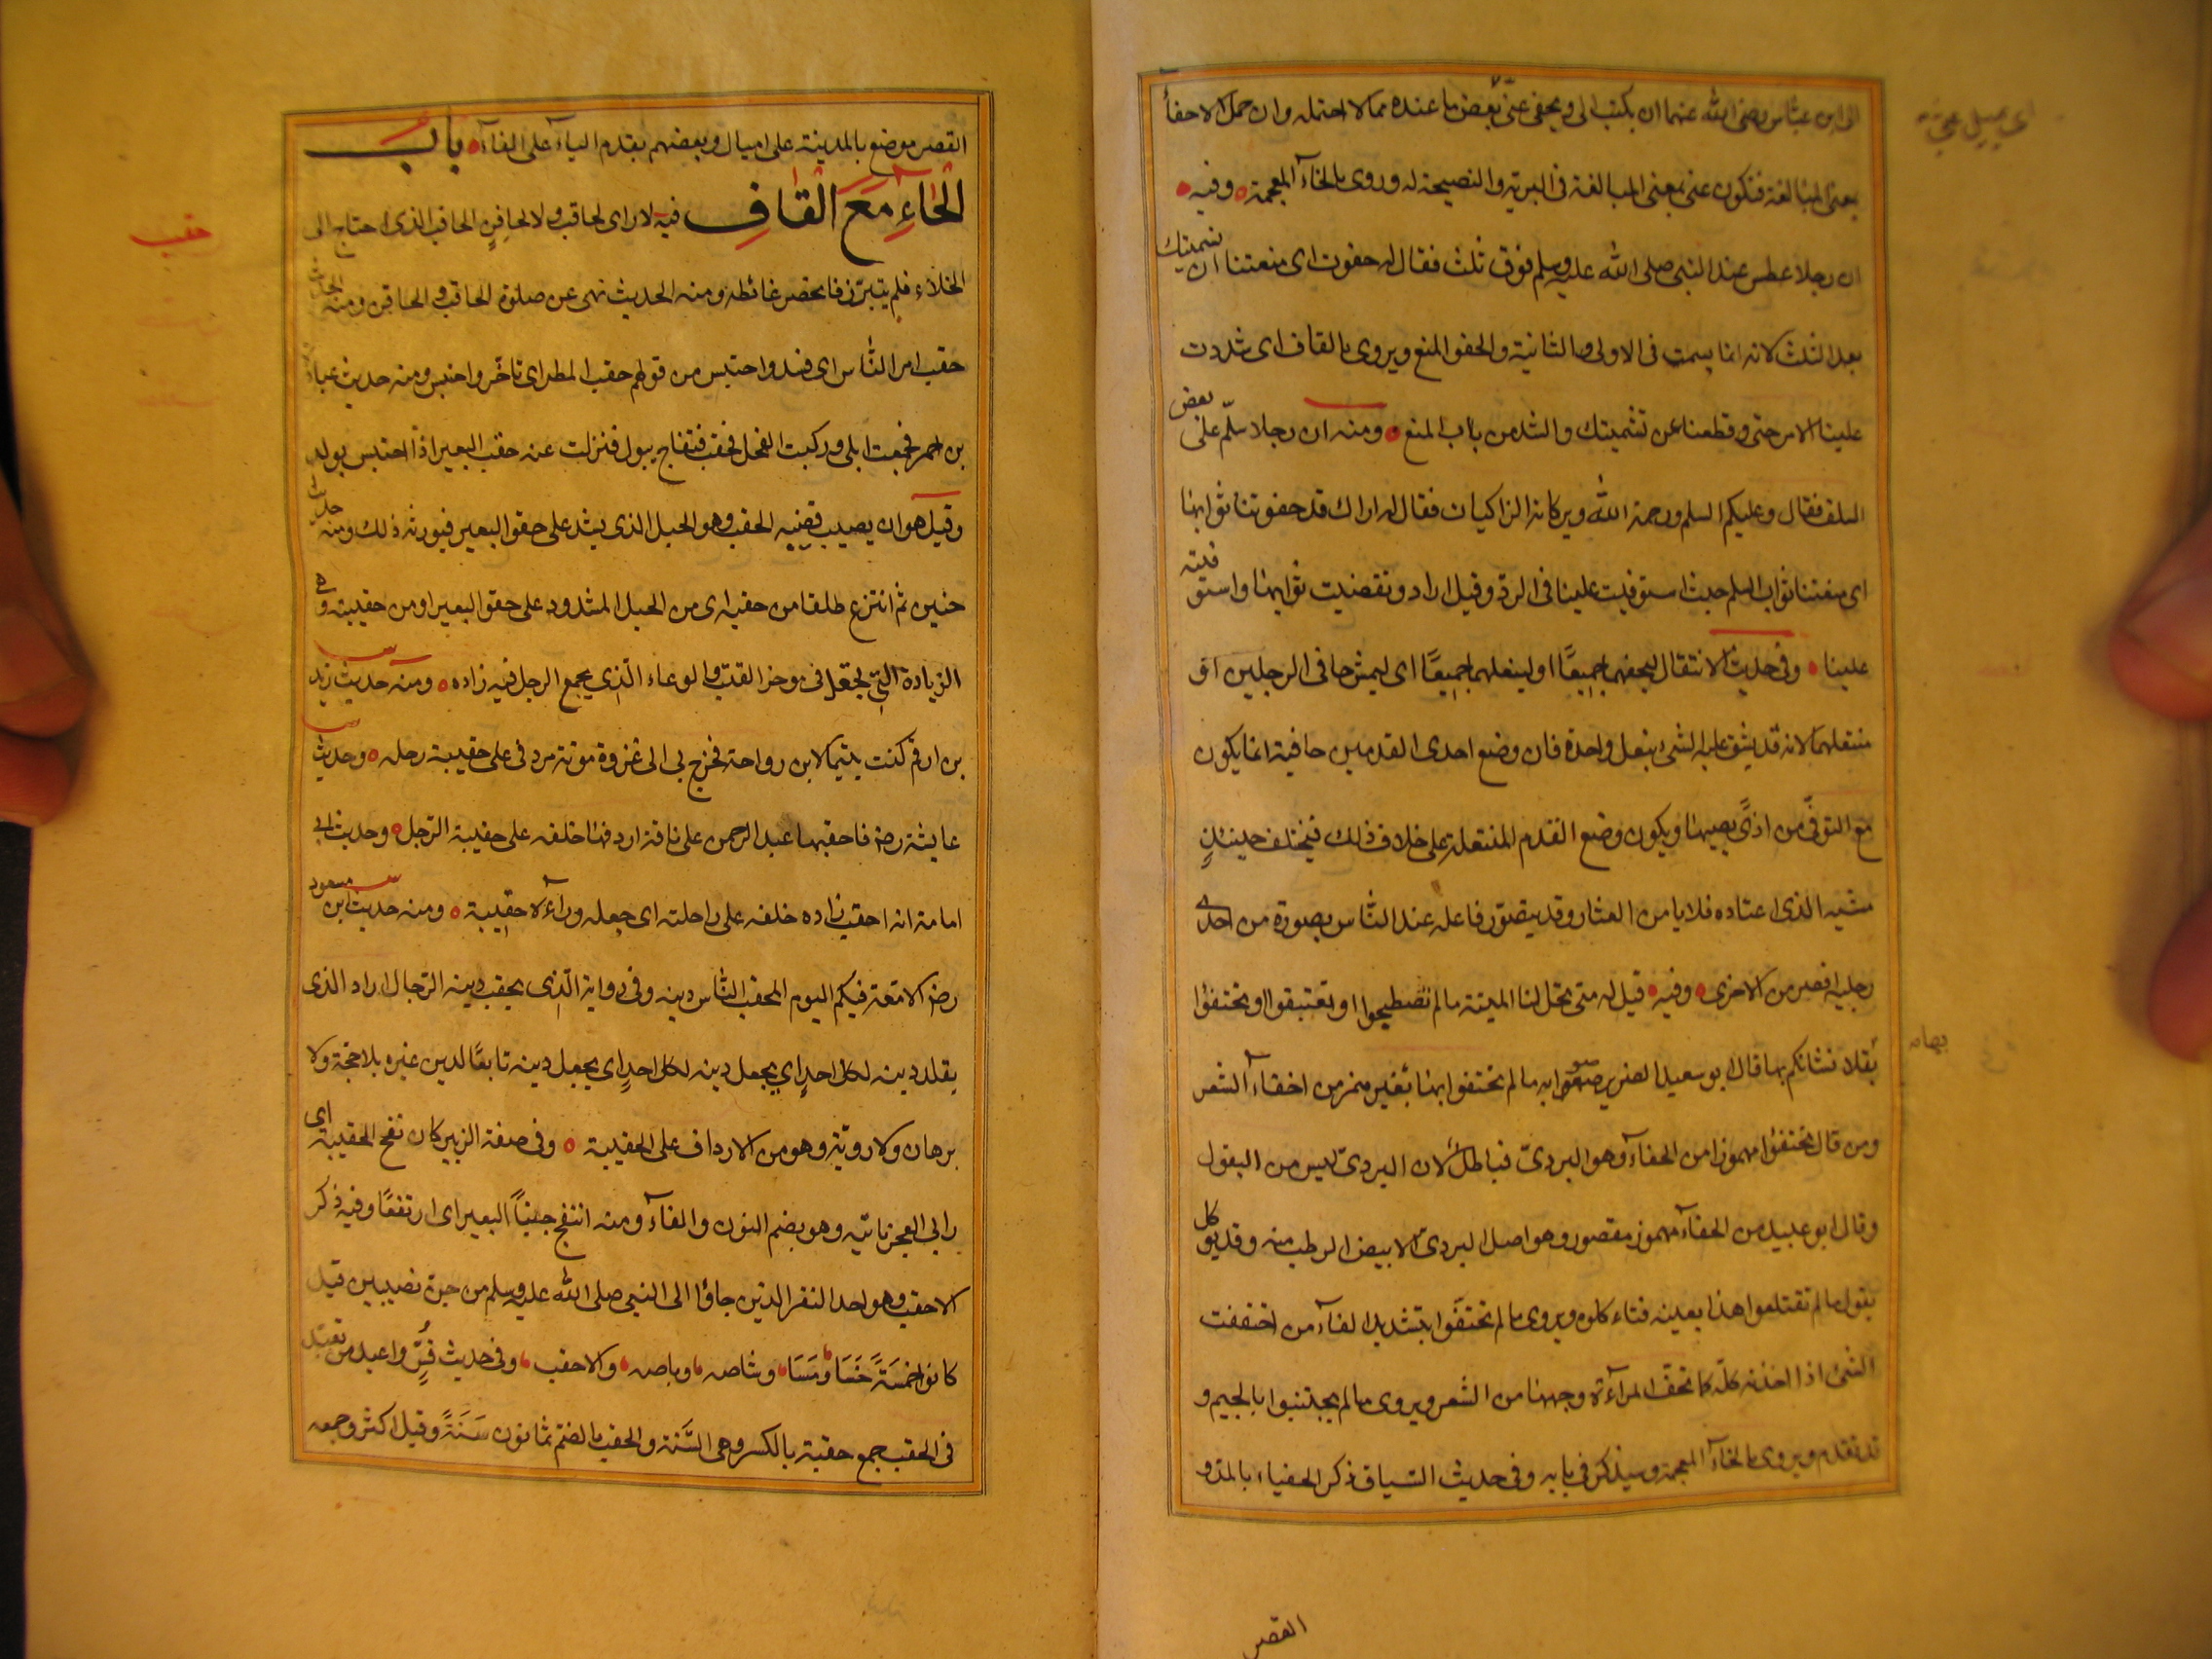 الى ابن عباس رضى الله عنهما ان يكتب الى ويحفى عنى بعض ما عنده مما لا احتمله وان حمل الاحفاء
بمعنى المبالغة فتكون عنى بمعنى المبالغة فى البر به والنصيحة له وروى بالخاء المعجمة وفيه
ان رجلا عطس عند النبى صلى الله عليه وسلم فوق ثلث فقال له حفوت اى منعتنا ان نشمتك
بعد الثلث لانه انما يسمت فى الاولى والثانية والحفو المنع ويروى بالقاف اى شددت
علينا الامر حتى قطعنا عن تشميتك والشد من باب المنع ومنه ان رجلا سلم على بعض
السلف فقال وعليكم السلم ورحمة الله وبركاته الزاكيات فقال له اراك قد حفوتنا ثوابها
اى منعتنا ثواب السلم حيث استوفيت علينا فى الرد وقيل اراد تقضيت ثوابها واستوفيته
علينا وفى حديث الانتعال ليحفهما جميعا او لينعلهما جميعا اى ليمش حافى الرجلين او
منتعلهما لانه قد يشق عليه المشى بنعل واحدة فان وضع احدى القدمين حافية انما يكون
مع التوقى من اذى يصيبها ويكون وضع القدم المنتعلة على خلاف ذلك فيختلف حينئذ
مشيه الذى اعتاده فلا يامن العثار وقد يتصور فاعله عند الناس بصورة من احدى
رجليه اقصر من الاخرى وفيه قيل له متى تحل لنا الميتة ما لم تصطبحوا او تغتبقوا او تحتفئوا
بقلا فشانكم بها قال ابو سعيد الضرير صوابه ما لم تحتفوا بها بغير همز من احفاء الشعر
ومن قال تحتفئوا مهموزا من الحفاء وهو البردى فباطل لان البردى ليس من البقول
وقال ابو عبيد من الحفاء مهموز مقصور وهو اصل البردى الابيض الرطب منه وقد يوكل
يقول ما لم تقتلعوا هذا بعينه فتاكلوه ويروى ما لم تحتفوا بتشديد الفاء من احتففت
الشئ اذا اخذته كله كما تحف المراة وجهها من الشعر ويروى ما لم تجتنبوا بالجيم و
قد تقدم ويروى بالخاء المعجمة وسيذكر فى بابه وفى حديث السباق ذكر الحفياء بالمد و
القصر
القصر موضع بالمدينة على اميال وبعضهم يقدم الياء على الفاء باب
الحاء مع القاف فيه لا راى لحاقب ولا لحاقن الحاقب الذى احتاج الى
الخلاء فلم يتبرز فانحصر غائطه ومنه الحديث نهى عن صلوة الحاقب والحاقن ومنه الحديث
حقب امر الناس اى فسد واحتبس من قولهم حقب المطر اى تاخر واحتبس ومنه حديث عبادة
بن احمر فجمعت ابلى وركبت الفحل فحقب فتفاج يبول فنزلت عنه حقب البعير اذا احتبس بوله
وقيل هو ان يصيب قضيبه الحقب وهو الحبل الذى يشد على حقو البعير فيورثه ذلك ومنه حديث
حنين ثم انتزع طلقا من حقبه اى من الحبل المشدود على حقو البعير او من حقيبته وهى
الزيادة التى تجعل فى موخر القتب والوعاء الذى يجمع الرجل فيه زاده ومنه حديث زيد
بن ارقم كنت يتيما لابن رواحة فخرج بى الى غزوة موتة مردفى على حقيبة رحله وحديث
عايشة رضه فاحقبها عبد الرحمن على ناقة اردفها خلفه على حقيبة الرحل وحديث ابى
امامة انه احقب زاده خلفه على راحلته اى جعله وراءه حقيبة ومنه حديث ابن مسعود
رضه الامعة فيكم اليوم المحقب الناس دينه وفى رواية الذى يحقب دينه الرجال اراد الذى
يقلد دينه لكل احد اى يجعل دينه تابعا لدين غيره بلا حجة ولا
برهان ولا روية وهو من الارداف على الحقيبة وفى صفة الزبير كان نفج الحقيبة اى
رابى العجز ناتيه وهو بضم النون والفاء ومنه انتفج جنبا البعير اى ارتفعا وفيه ذكر
الاحقب وهو احد النفر الذين جاؤا الى النبى صلى الله عليه وسلم من جن نصيبين قيل
كانوا خمسة خسا ومسا وشاصه وباصه والاحقب وفى حديث قس واعبد من تعبد
فى الحقب جمع حقبة بالكسر وهى السنة والحقب بالضم ثمانون سنة وقيل اكثر وجمعه
حقب